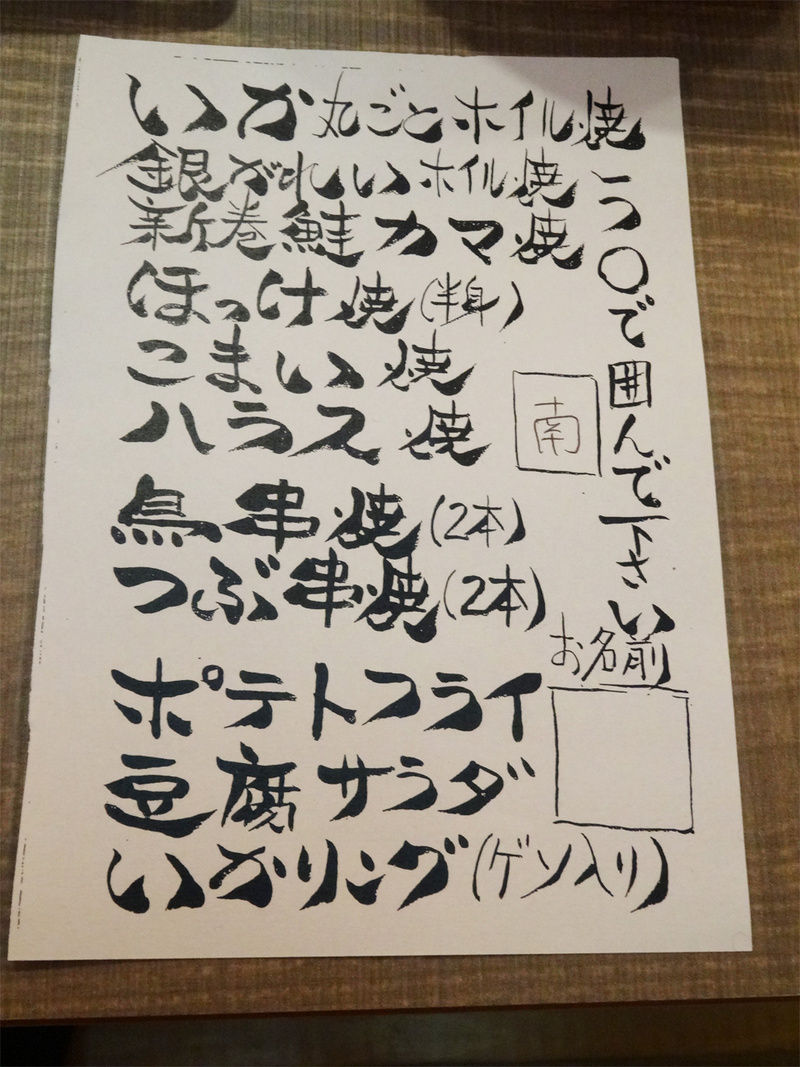 いか丸ごとホイル焼
銀がれいホイル焼
新巻鮭カマ焼
ほっけ焼(半身)
こまい焼
ハラス焼
鳥串焼(2本)
つぶ串焼(2本)
ポテトフライ
豆腐サラダ
いかリング(ゲソ入り)
一つ〇で囲んで下さい
南
お名前